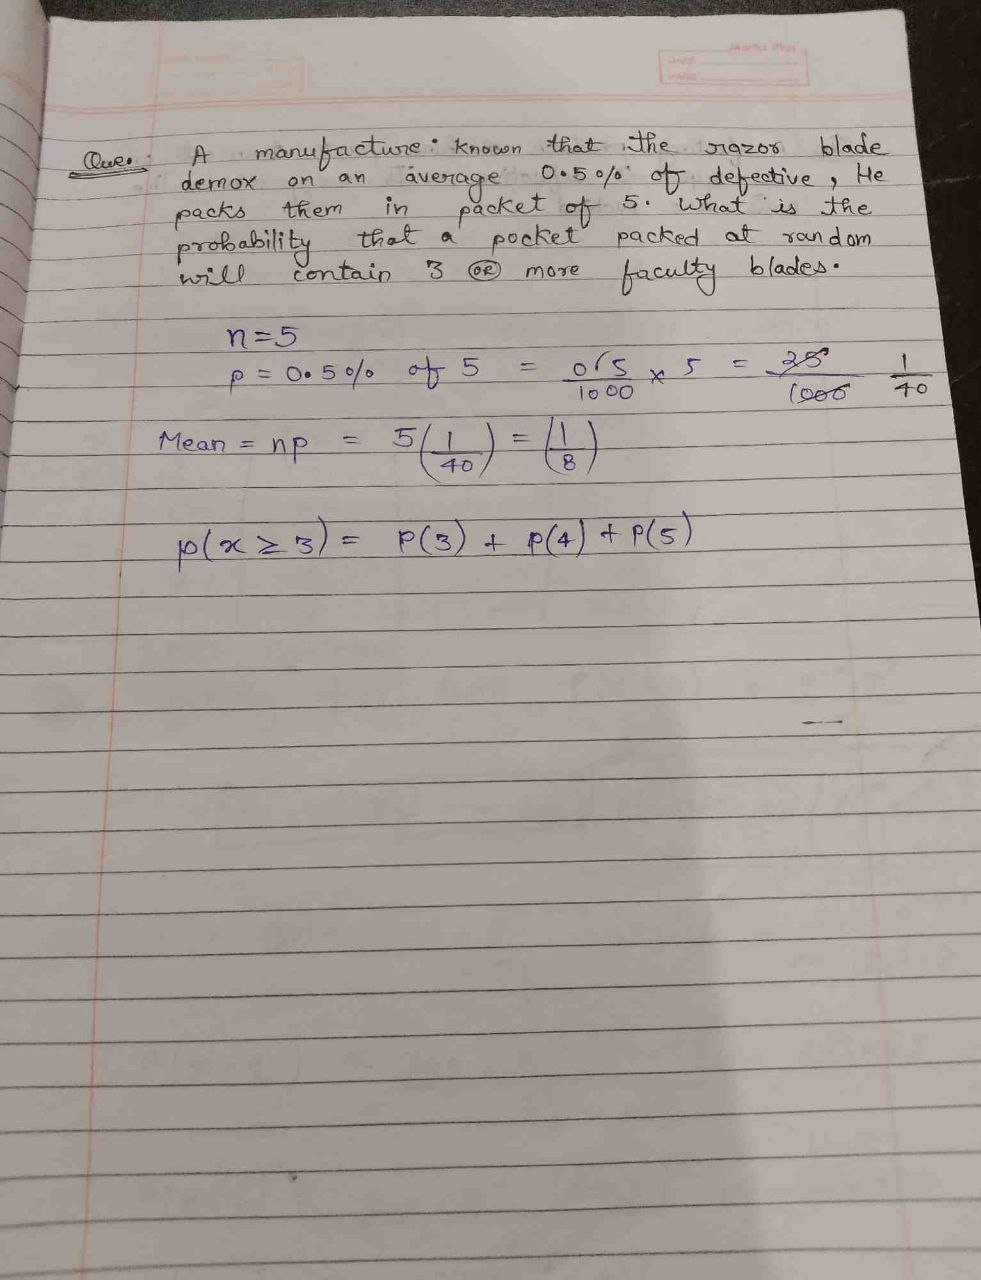 Ques. A manufacture: known that the razor blade
demox on an average 0.50% of defective, He
packs them in packet of 5. What is the
probability that a pocket packed at random
will contain 3 OR more faculty blades.
n=5
p = 0.50% of 5 = 0/5/1000 × 5 = 25/1000 1/40
Mean = np = 5(1/40) = (1/8)
p(x ≥ 3) = P(3) + P(4) + P(5)